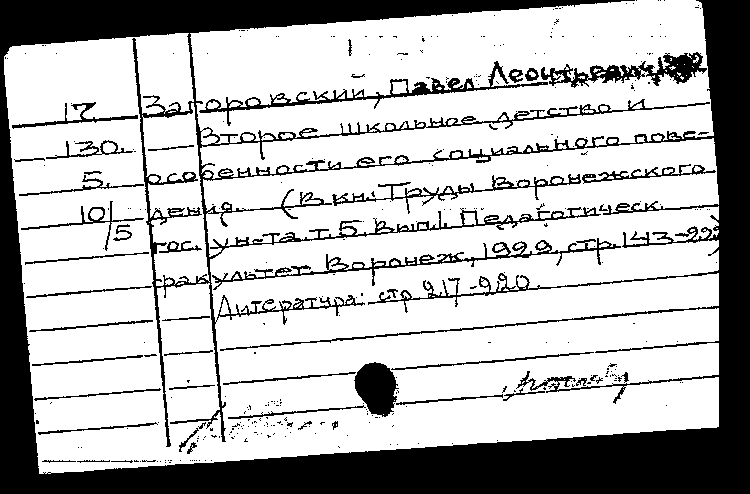 17 Загоровский, Павел Леонтьевич, 1892
130. Второе школьное детство и
5. особенности его социального пове-
10/5 дения. (В кн.: Труды Воронежского
гос. ун-та. т. 5. Вып. 1. Педагогическ.
факультет. Воронеж, 1929, стр. 143-222)
Литература: стр 217-220.